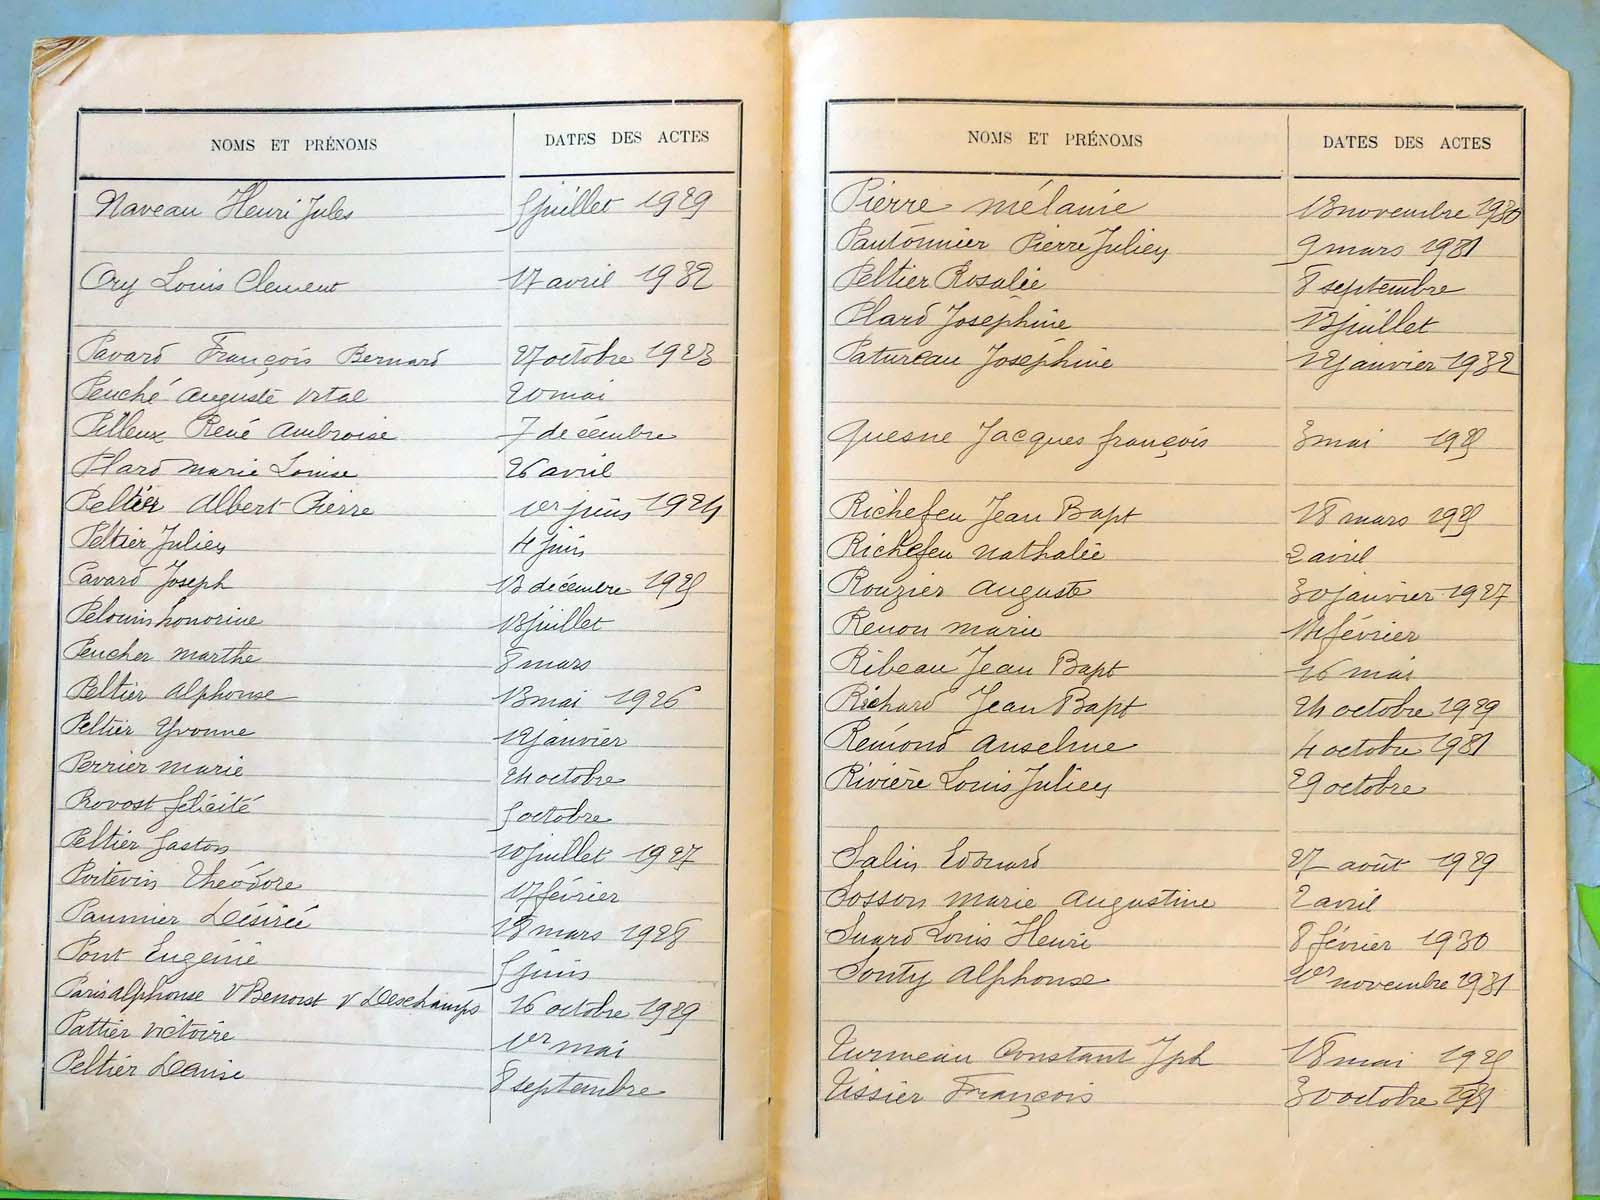 NOMS ET PRÉNOMS DATES DES ACTES
Naveau Henri Jules 5 juillet 1929
Ory Louis Clement 17 avril 1932
Pavard François Bernard 27 octobre 1923
Peuché Auguste Vital 20 mai
Pilleux René Ambroise 7 décembre
Plard Marie Louise 26 avril
Peltier Albert Pierre 1er juin 1924
Peltier Julien 4 juin
Pavard Joseph 13 décembre 1925
Pelouin honorine 18 juillet
Peucher Marthe 8 mars
Peltier Alphonse 13 mai 1926
Peltier Yvonne 12 janvier
Perrier Marie 24 octobre
Provost félicité 5 octobre
Peltier Gaston 10 juillet 1927
Poitevin Théodore 17 février
Paumier Désirée 18 mars 1928
Pont Eugénie 5 juin
Paris alphonse V Benoist V Deschamps 16 octobre 1929
Pattier Victoire 1er mai
Peltier Denise 8 septembre
NOMS ET PRÉNOMS DATES DES ACTES
Pierre Mélanie 13 novembre 1930
Pautonnier Pierre Julien 9 mars 1931
Peltier Rosalie 8 septembre
Plard Joséphine 13 juillet
Patureau Joséphine 12 janvier 1932
Quesne Jacques françois 3 mai 1925
Richefeu Jean Bapt 18 mars 1925
Richefeu Nathalie 2 avril
Rouzier Auguste 30 janvier 1927
Renou Marie 14 février
Ribeau Jean Bapt 16 mai
Richard Jean Bapt 24 octobre 1929
Rémond Anselme 4 octobre 1931
Rivière Louis Julien 29 octobre
Salin Edouard 27 août 1929
Sosson Marie Augustine 2 avril
Suard Louis Henri 8 février 1930
Souty Alphonse 1er novembre 1931
Turmeau Constant Jph 18 mai 1925
Tissier François 30 octobre 1931